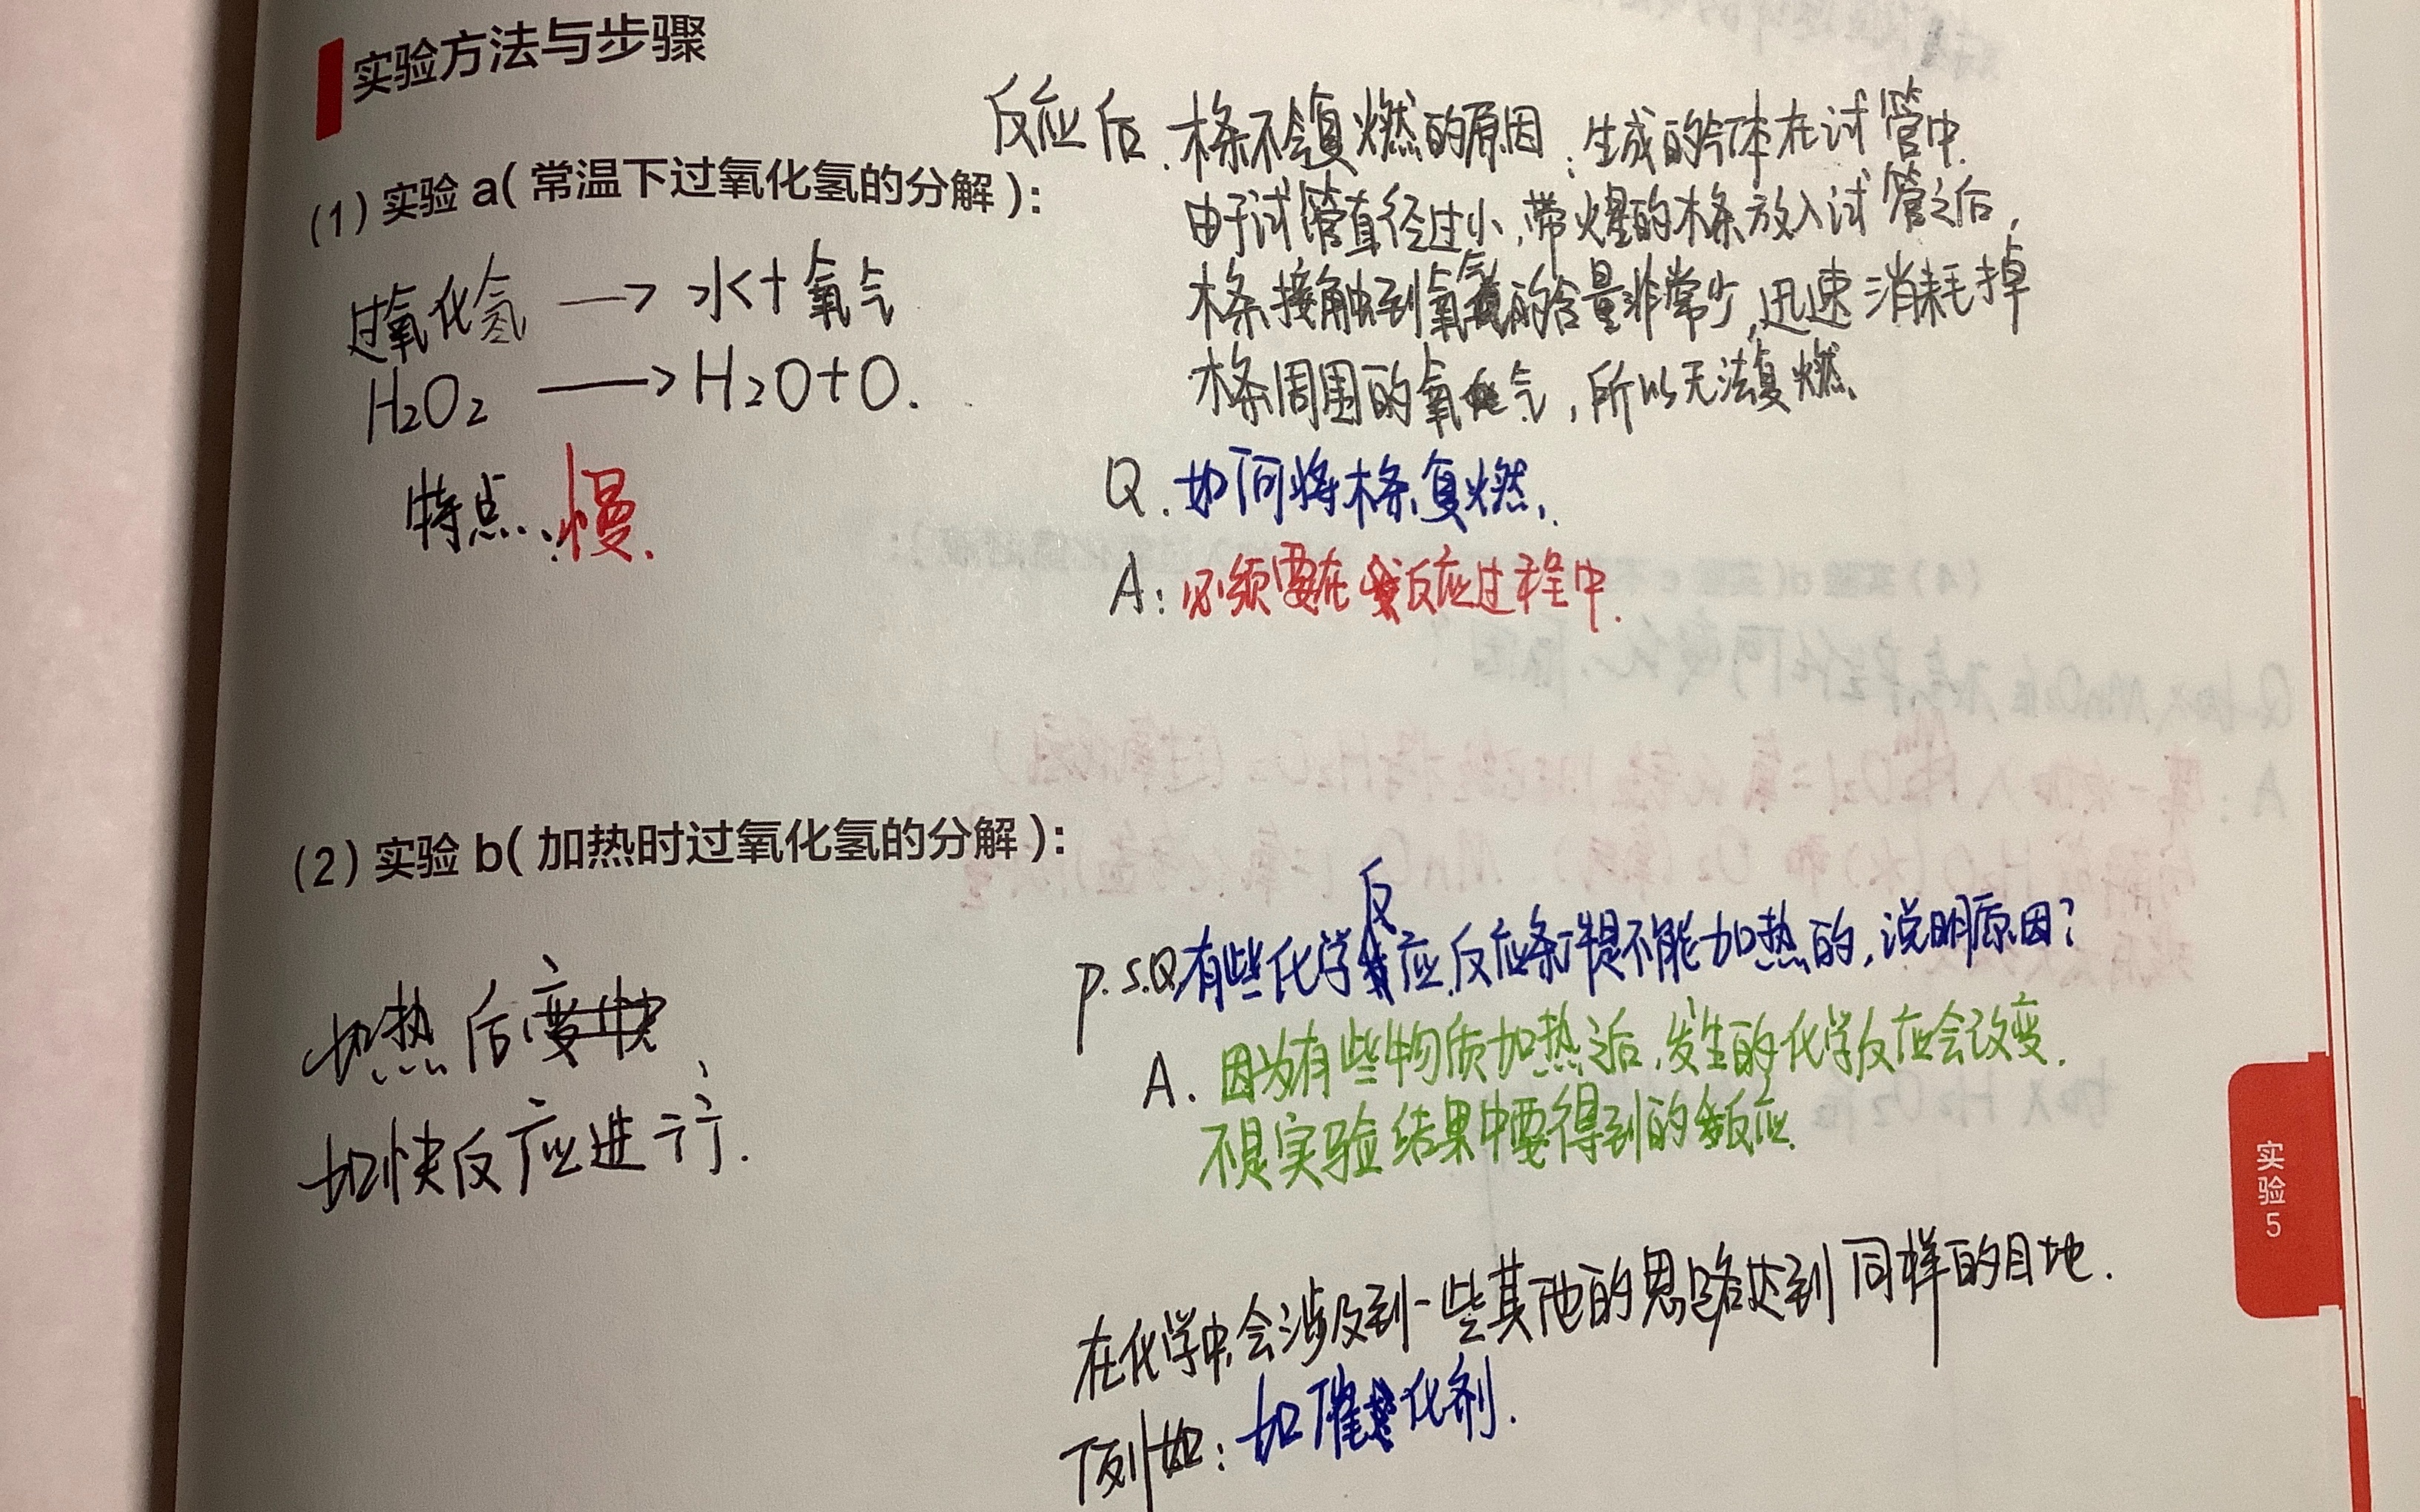 实验方法与步骤
(1)实验 a(常温下过氧化氢的分解):
过氧化氢 → 水+氧气
H₂O₂ → H₂O+O.
特点:慢.
反应后.木条不会复燃的原因:生成的气体在试管中.
由于试管直径过小,带火星的木条放入试管之后,
木条接触到氧气的含量非常少,迅速消耗掉
木条周围的氧气,所以无法复燃.
Q.如何将木条复燃.
A:必须要在反应过程中.
(2)实验 b(加热时过氧化氢的分解):
加热后变快
加快反应进行.
P.S.Q有些化学反应.反应条件是不能加热的,说明原因?
A.因为有些物质加热之后,发生的化学反应会改变.
不是实验结果中要得到的反应.
在化学中,会涉及到一些其他的思路达到同样的目地.
例如:加催化剂.
实验5